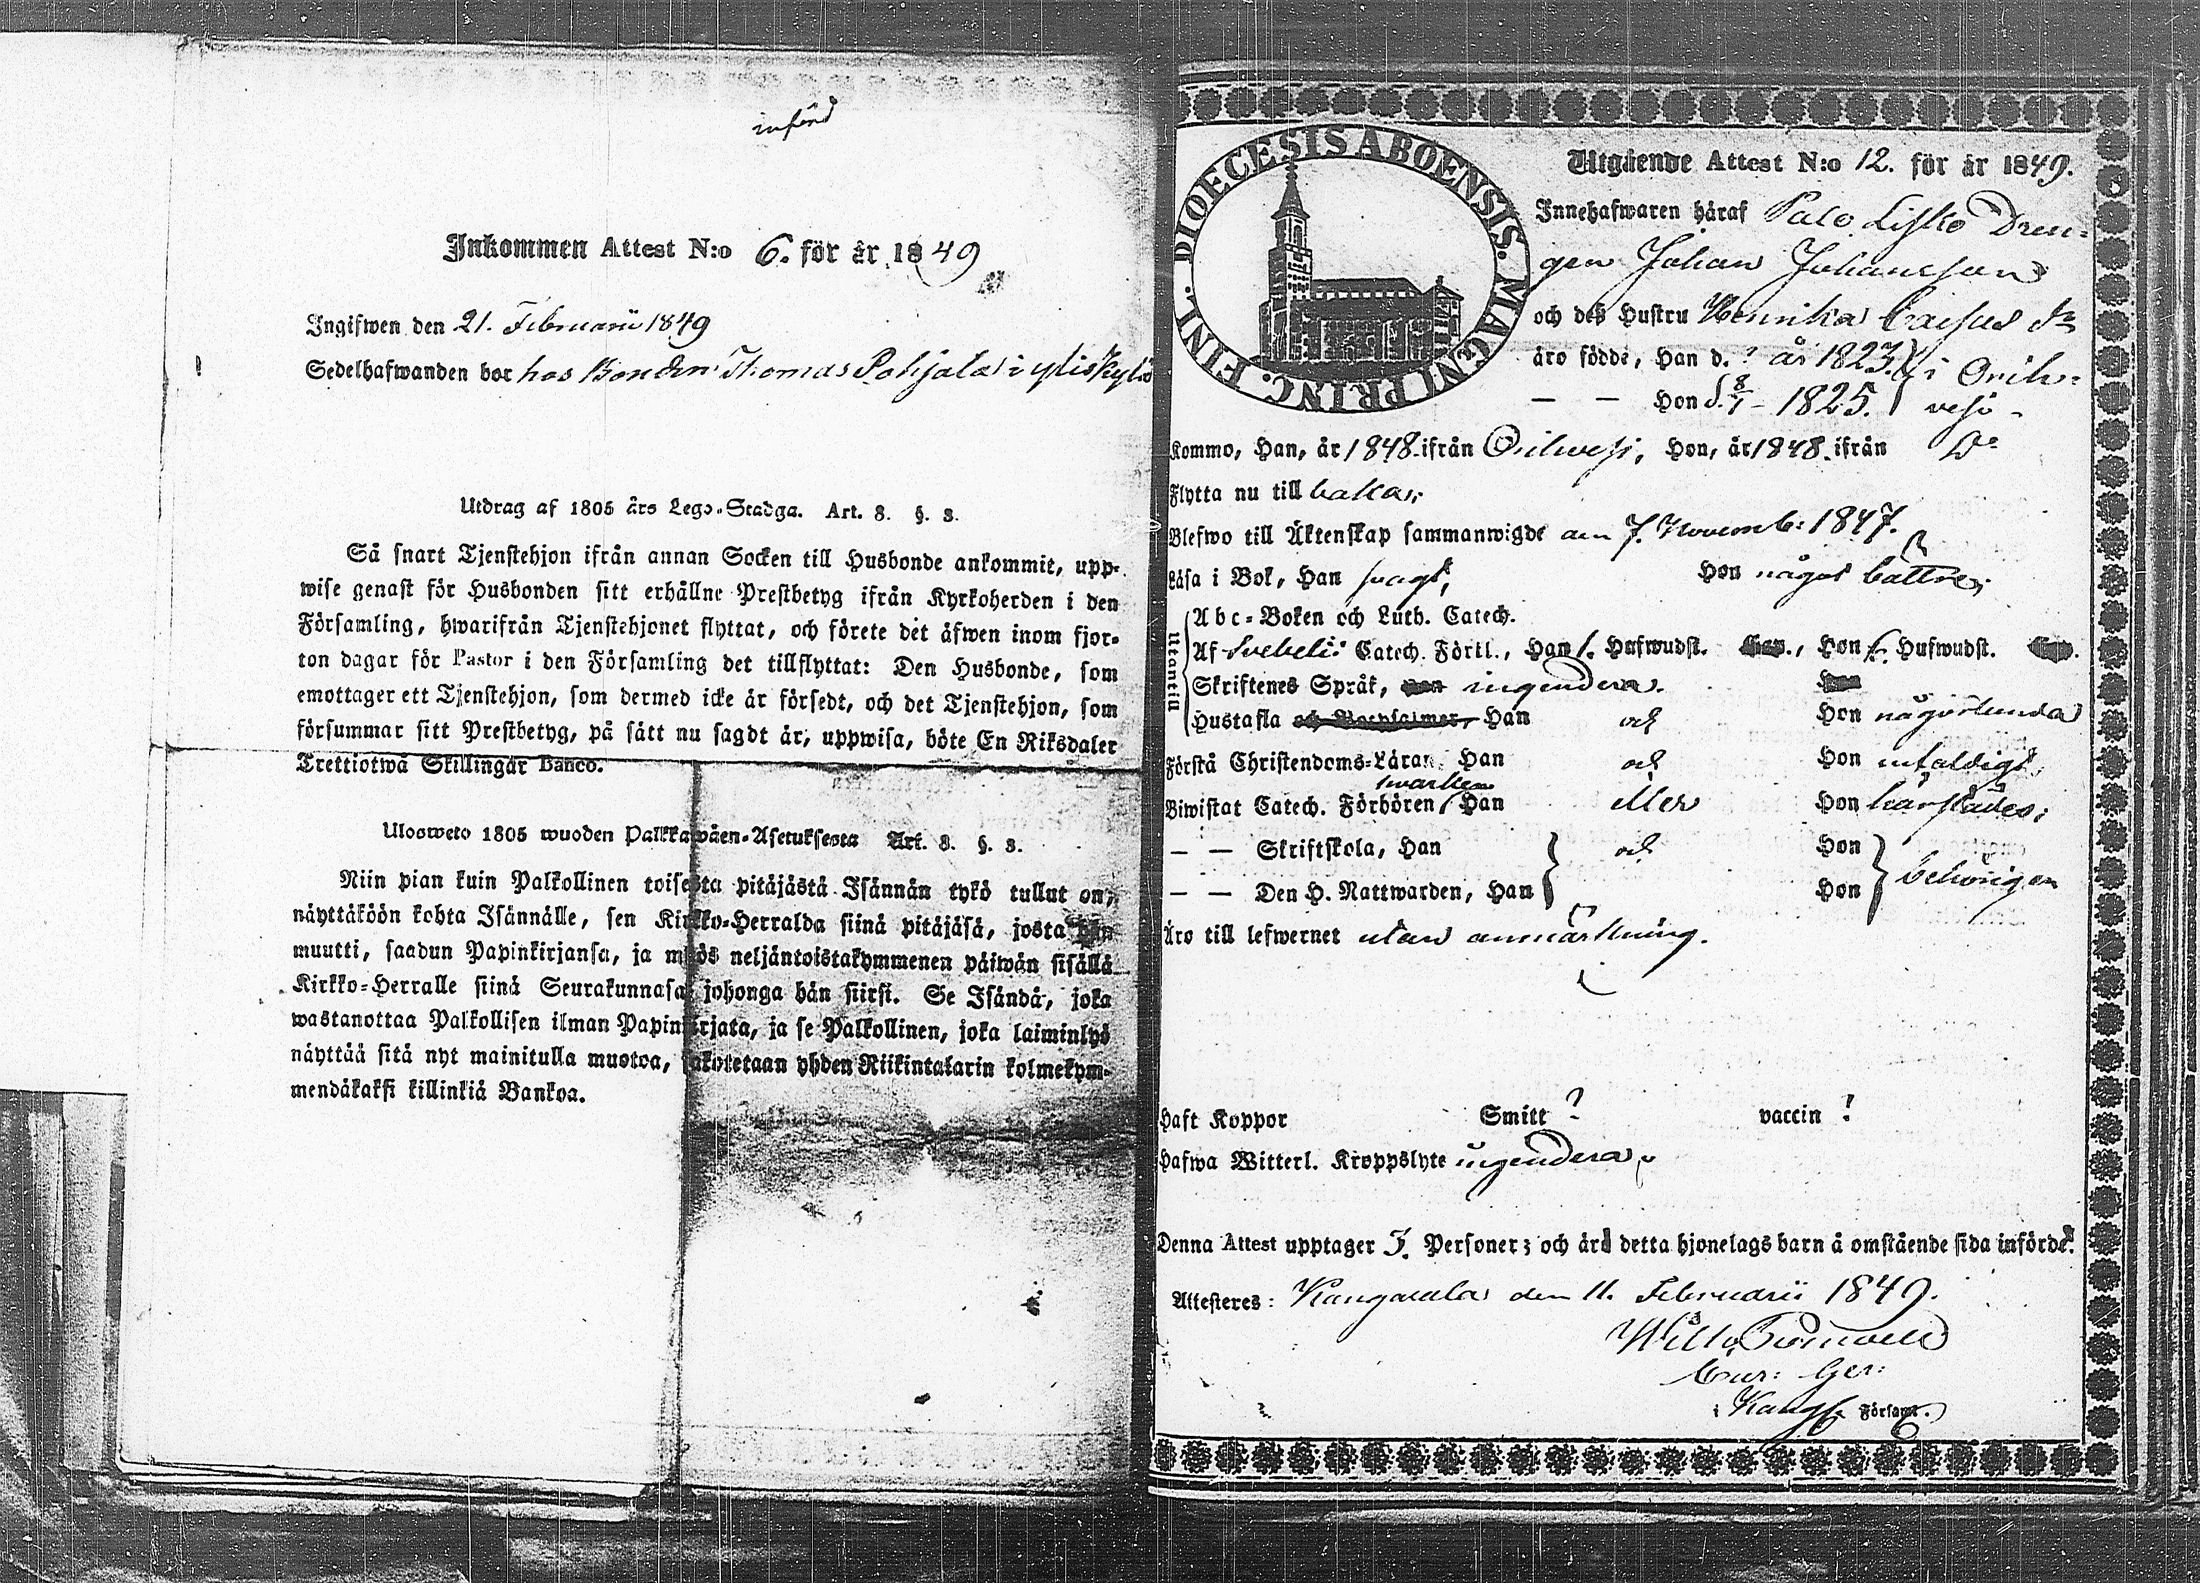 införd
Inkommen Attest N:o 6. för år 1849
Ingifwen den 21. Februarii 1849
Sedelhafwanden bor hos Bonden Thomas Pohjala i yliskylä
Utdrag af 1805 års Lego-Stadga. Art. 8. §. 3.
Så snart Tjenstehjon ifrån annan Socken till Husbonde ankommit, upp-
wise genast för Husbonden sitt erhållne Prestbetyg ifrån Kyrkoherden i den
Församling, hwarifrån Tjenstehjonet flyttat, och förete det äfwen inom fjor-
ton dagar för Pastor i den Församling det tillflyttat: Den Husbonde, som
emottager ett Tjenstehjon, som dermed icke är försedt, och det Tjenstehjon, som
försummar sitt Prestbetyg, på sätt nu sagdt är, uppwisa, böte En Riksdaler
Trettiotwå Skillingar Banco.
Ulosweto 1805 wuoden Palkkawäen-Asetuksesta Art. 8. §. 3.
Niin pian kuin Palkollinen toisesta pitäjästä Isännän tykö tullut on,
näyttäköön kohta Isännälle, sen Kirkko-Herralda siinä pitäjäsä, josta hän
muutti, saadun Papinkirjansa, ja myös neljäntoistakymmenen päiwän sisällä
Kirkko-Herralle siinä Seurakunnasa johonga hän siirsi. Se Isändä, joka
wastanottaa Palkollisen ilman Papinkirjata, ja se Palkollinen, joka laiminlyö
näyttää sitä nyt mainitulla muotoa, sakotetaan yhden Riikintalarin kolmekym-
mendäkaksi killinkiä Bankoa.
DIOECESIS ABOENSIS. MAGNI PRINC. FINL.
Utgående Attest N:o 12. för år 1849.
Innehafwaren häraf Palo Lisko Dren-
gen Johan Johansson
och des Hustru Henrika Caisas dr
äro födde, Han d. ? år 1823. i Orih-
— — Hon d. 8/1 - 1825. vesi -
Kommo, Han, år 1848. ifrån Orihvesi, Hon, år 1848. ifrån Do
Flytta nu till baka.
Blefwo till Äktenskap sammanwigde den 7. Novemb: 1847.
Läsa i Bok, Han svagt, Hon något bättre,
Utantill
Abc-Boken och Luth. Catech.
Af Svebelii Catech. Förkl., Han 1. Hufwudst. Hon 6. Hufwudst.
Skriftenes Språk, ingendera.
Hustafla och Han och Hon någorlunda
Förstå Christendoms-Läran, Han och Hon enfaldigt,
Biwistat Catech. Förhören, hwarken Han eller Hon härstädes;
— — Skriftskola, Han och Hon
— — Den H. Nattwarden, Han Hon behörigen
Äro till lefwernet utan anmärkning.
Haft Koppor Smitt ? vaccin ?
Hafwa Witterl. Kroppslyte ingendera.
Denna Attest upptager Personer; och äro detta hjonelags barn å omstående sida införde.
Attesteres: Kangasala den 11. Februarii 1849.
Cur: Ger:
i Kangs. Församl.